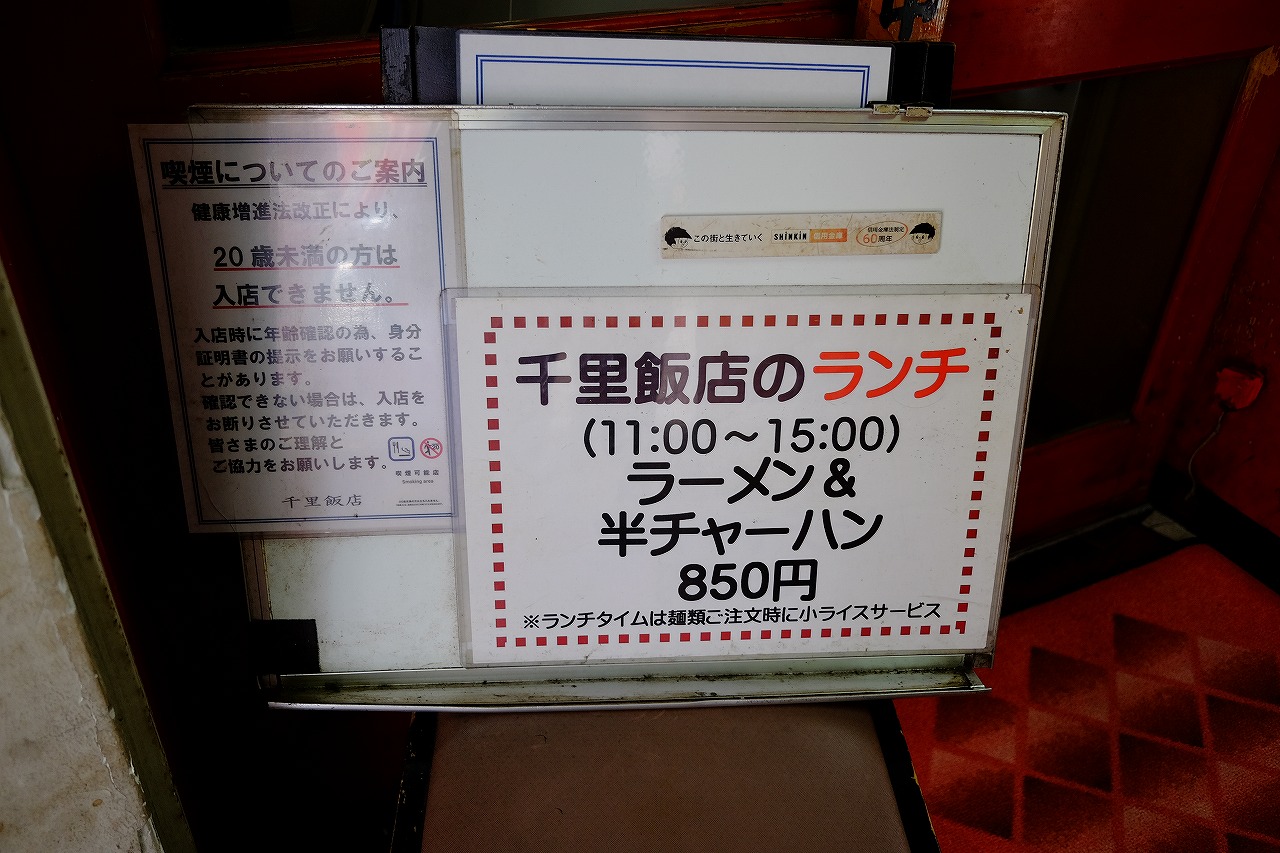 喫煙についてのご案内
健康増進法改正により、
20歳未満の方は
入店できません。
入店時に年齢確認の為、身分
証明書の提示をお願いするこ
とがあります。
確認できない場合は、入店を
お断りさせていただきます。
皆さまのご理解と
ご協力をお願いします。
喫煙可能店
Smoking area
千里飯店
この街と生きていく SHiNKiN 信用金庫 信用金庫法制定
60周年
千里飯店のランチ
(11:00～15:00)
ラーメン&
半チャーハン
850円
※ランチタイムは麺類ご注文時に小ライスサービス